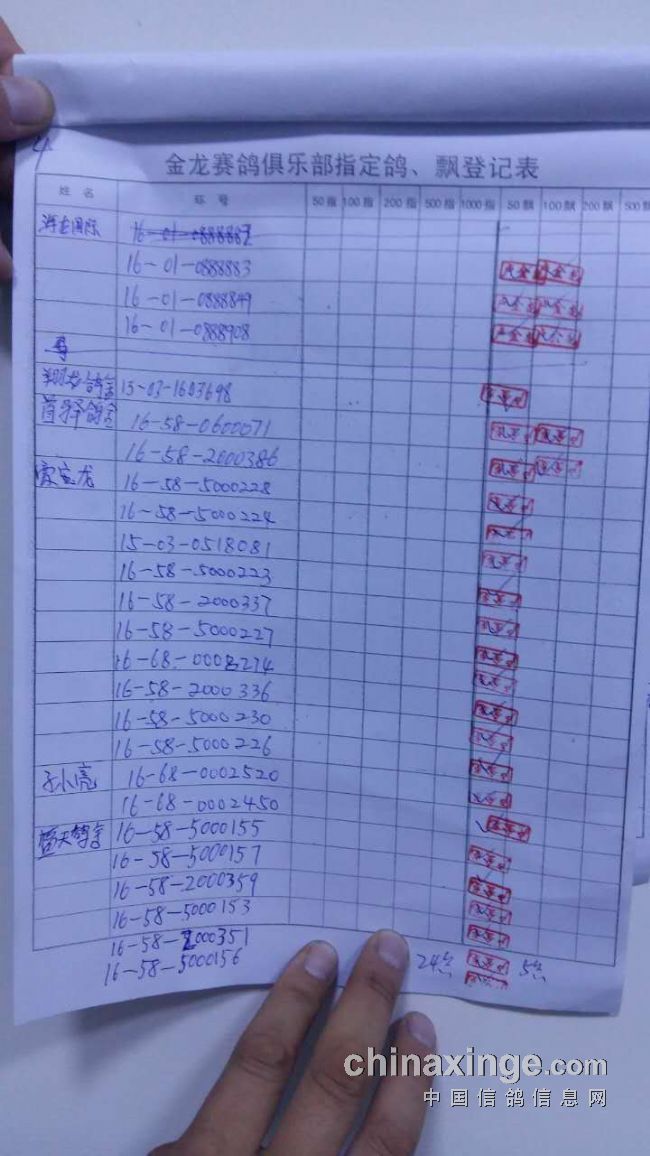 4
金龙赛鸽俱乐部指定鸽、飘登记表
姓 名 环 号 50 指 100 指 200 指 500 指 1000 指 50 飘 100 飘 200 飘 500 飘
16-01-0888883
16-01-0888849
16-01-0888908
翔龙鸽舍 15-03-1603698
16-58-0600071
16-58-2000386
16-58-5000228
16-58-5000224
15-03-0518081
16-58-5000223
16-58-2000337
16-58-5000227
16-68-0008274
16-58-2000336
16-58-5000230
16-58-5000226
孙小亮 16-68-0002520
16-68-0002450
蓝天鸽舍 16-58-5000155
16-58-5000157
16-58-2000359
16-58-5000153
16-58-2000351
16-58-5000156
24 5
chinaxinge.com
中国信鸽信息网